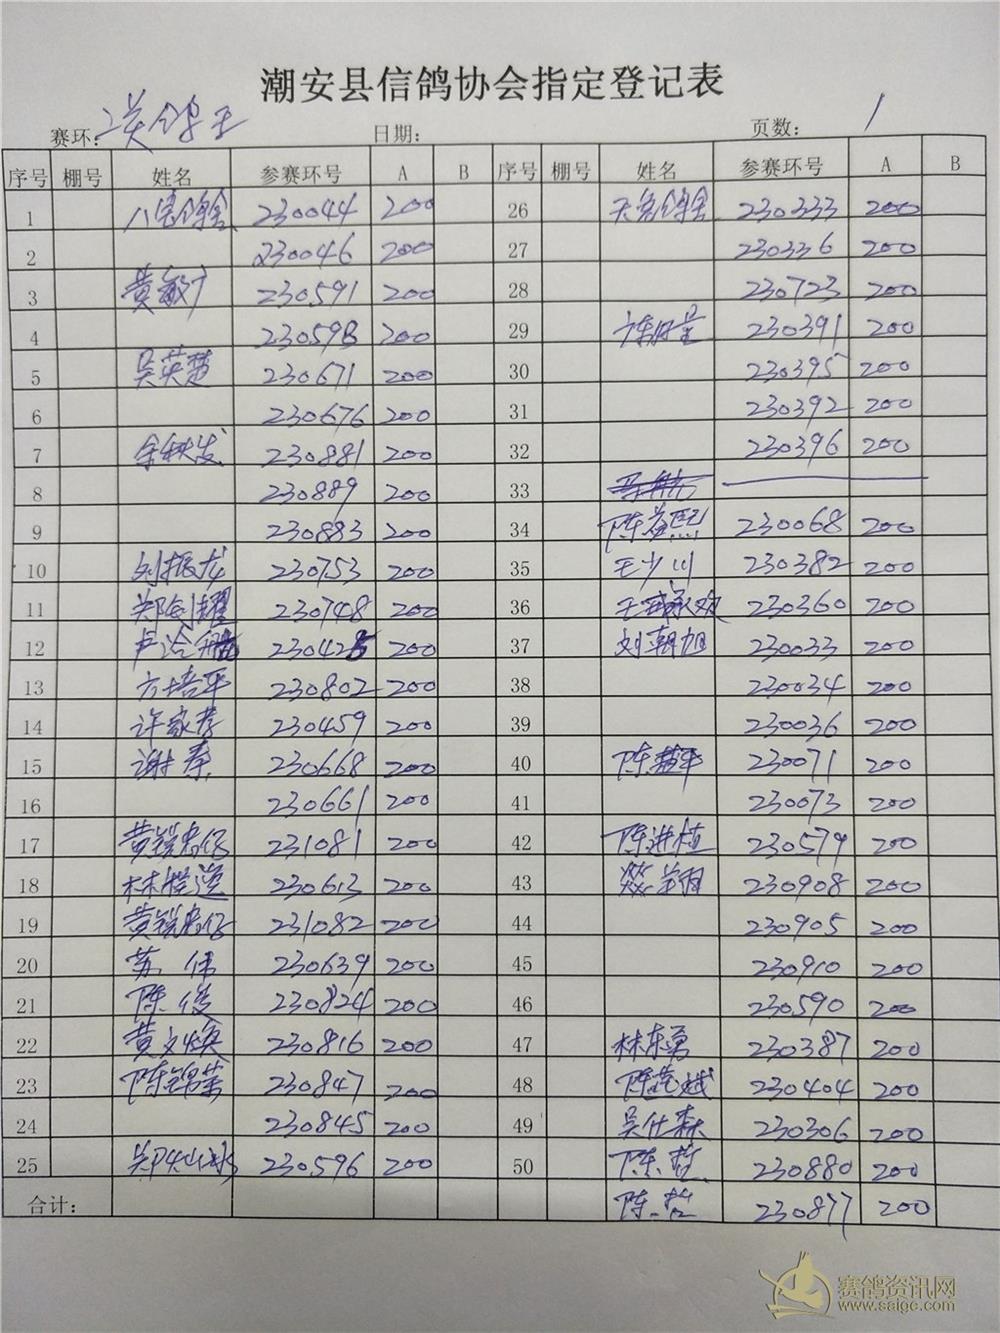 潮安县信鸽协会指定登记表
赛环: 鸽王 日期: 页数: 1
序号 棚号 姓名 参赛环号 A B 序号 棚号 姓名 参赛环号 A B
1 230044 200 26 230333 200
2 230046 200 27 230336 200
3 黄敏 230591 200 28 230723 200
4 200 29 230391 200
5 吴英楚 230671 200 30 230395 200
6 230676 200 31 230392 200
7 余秋发 230881 200 32 230396 200
8 230889 200 33
9 230883 200 34 陈益熙 230068 200
10 刘振龙 230753 200 35 王少川 230382 200
11 郑剑耀 230748 200 36 230360 200
12 200 37 刘朝旭 230033 200
13 方培平 230802 200 38 230034 200
14 许家 230459 200 39 230036 200
15 谢泰 230668 200 40 陈 平 230071 200
16 230661 200 41 230073 200
17 231081 200 42 陈进植 230579 200
18 230613 200 43 230908 200
19 231082 200 44 230905 200
20 苏伟 230639 200 45 230910 200
21 陈俊 230824 200 46 230590 200
22 黄文焕 230816 200 47 林东勇 230387 200
23 陈锦荣 230847 200 48 230404 200
24 230845 200 49 吴仕森 230306 200
25 230596 200 50 陈哲 230880 200
合计: 陈哲 230877 200
赛鸽资讯网
www.saigc.com